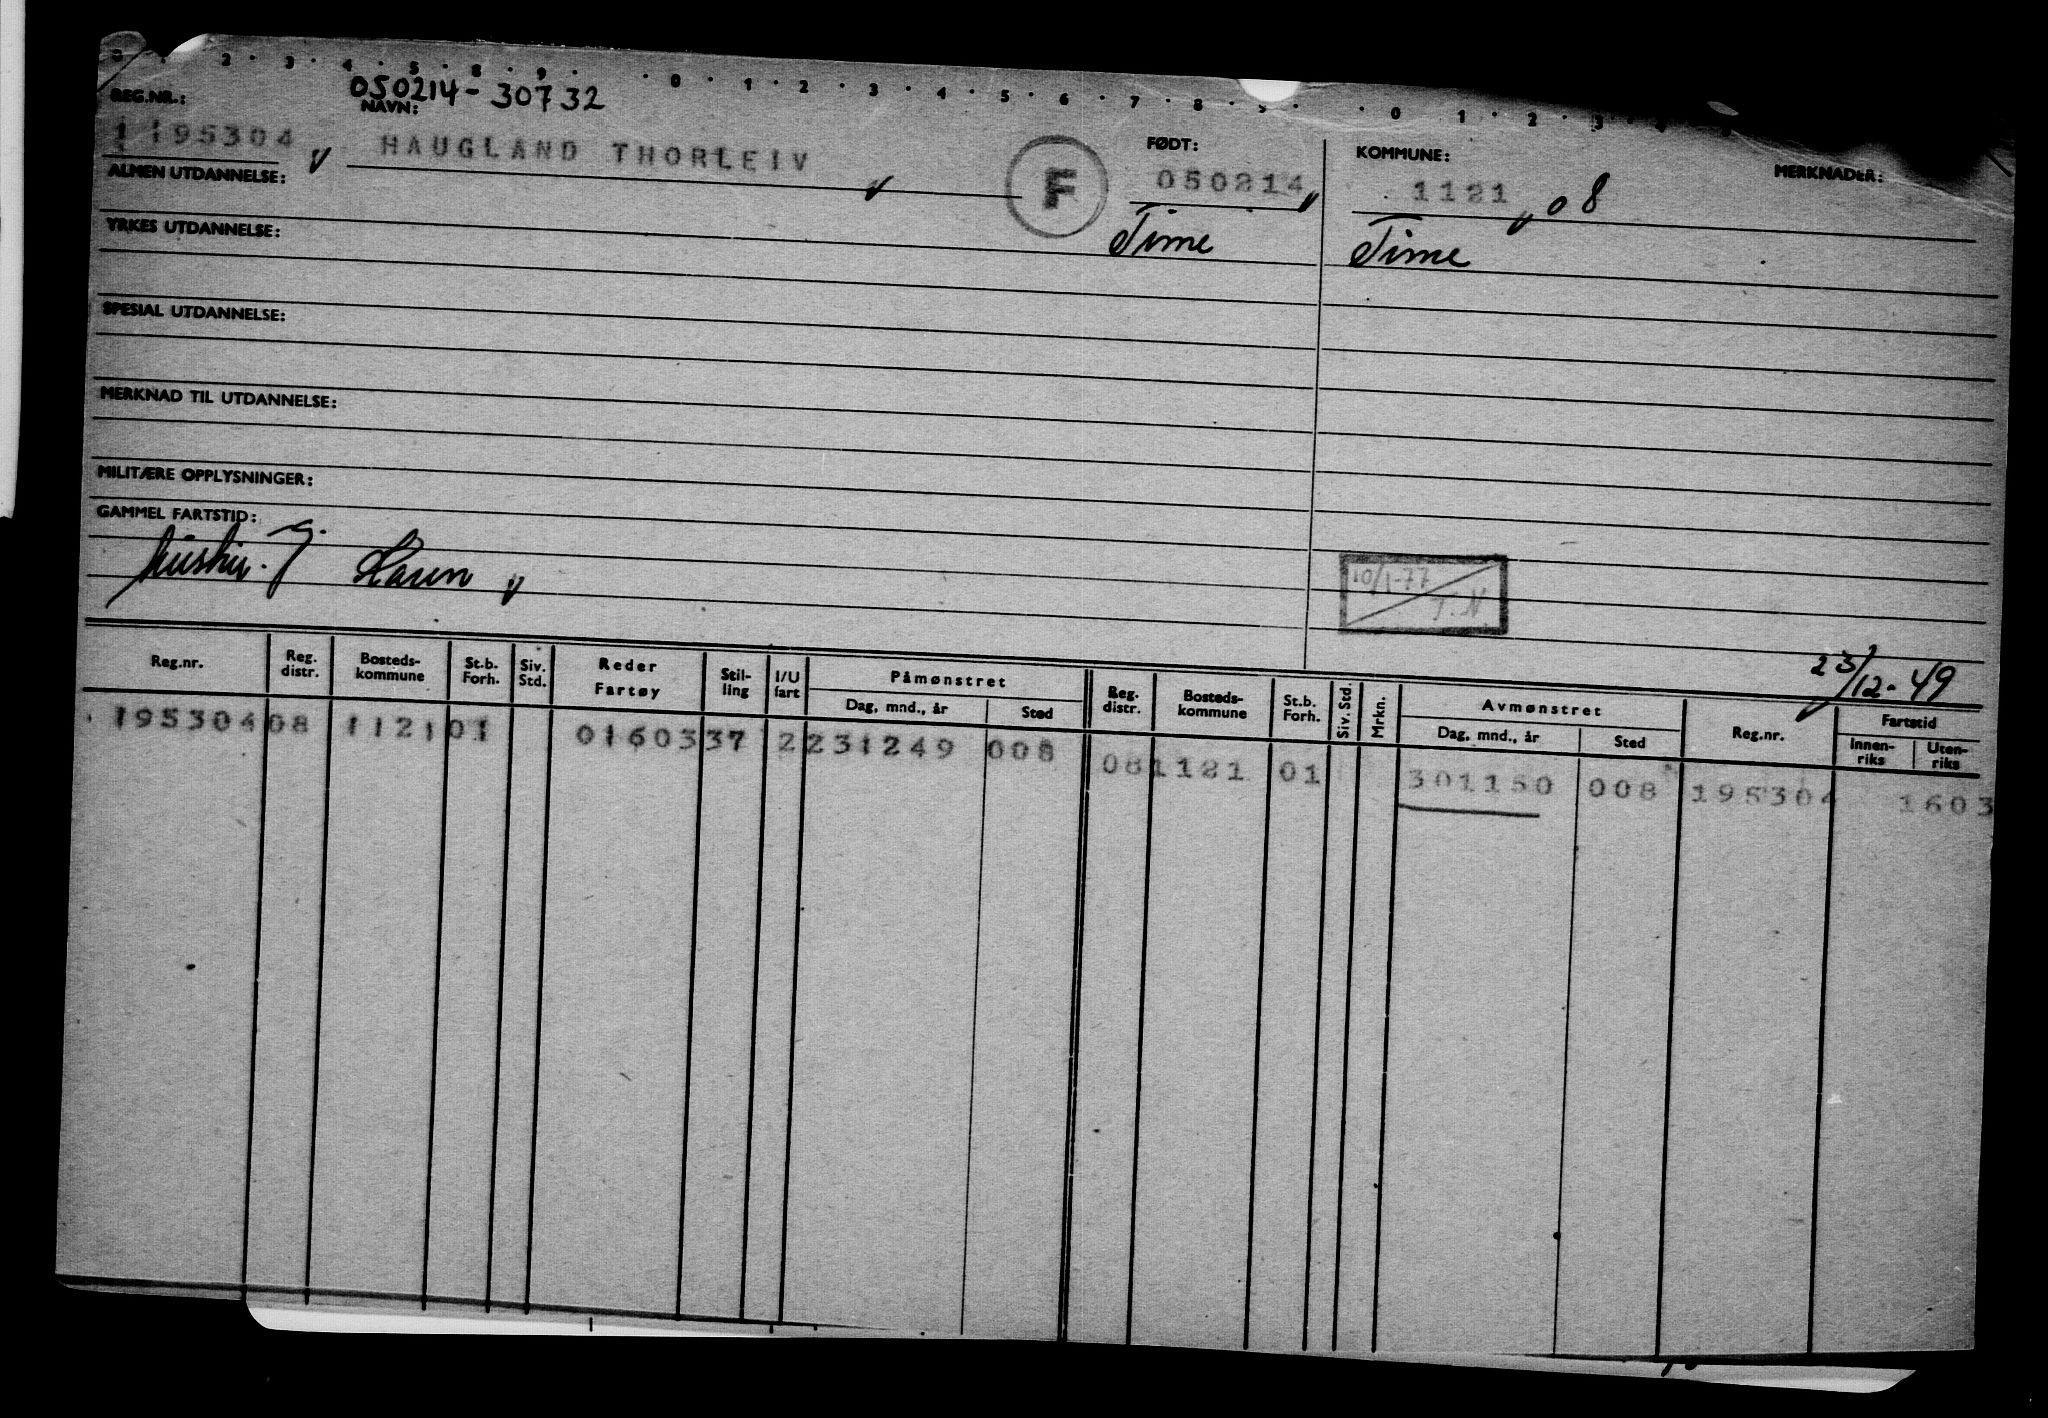 2 · 3 · 4 · 5 · 8 · 9 · · 0 · 1 · 2 · 3 · 4 · 5 · 6 · 7 · 8 · 9 · · 0 · 1 · 2 · 3 · 4
050214-30732
REG.NR.: NAVN: FØDT: KOMMUNE: MERKNADER:
195304 HAUGLAND THORLEIV F 050214 1121 08
ALMEN UTDANNELSE:
Time Time
YRKES UTDANNELSE:
SPESIAL UTDANNELSE:
MERKNAD TIL UTDANNELSE:
MILITÆRE OPPLYSNINGER:
GAMMEL FARTSTID:
10/1-77
T.N.
23/12-49
Reg.nr. Reg. distr. Bosteds-kommune St.b. Forh. Siv. Std. Reder Fartøy Stil-ling I/U fart Påmønstret Dag, mnd., år Sted Reg. distr. Bosteds-kommune St.b. Forh. Siv. Std. Mrkn. Avmønstret Dag, mnd., år Sted Reg.nr. Fartstid Innen-riks Uten-riks
195304 08 1121 01 01603 37 2 231249 008 08 1121 01 301150 008 195304 1603